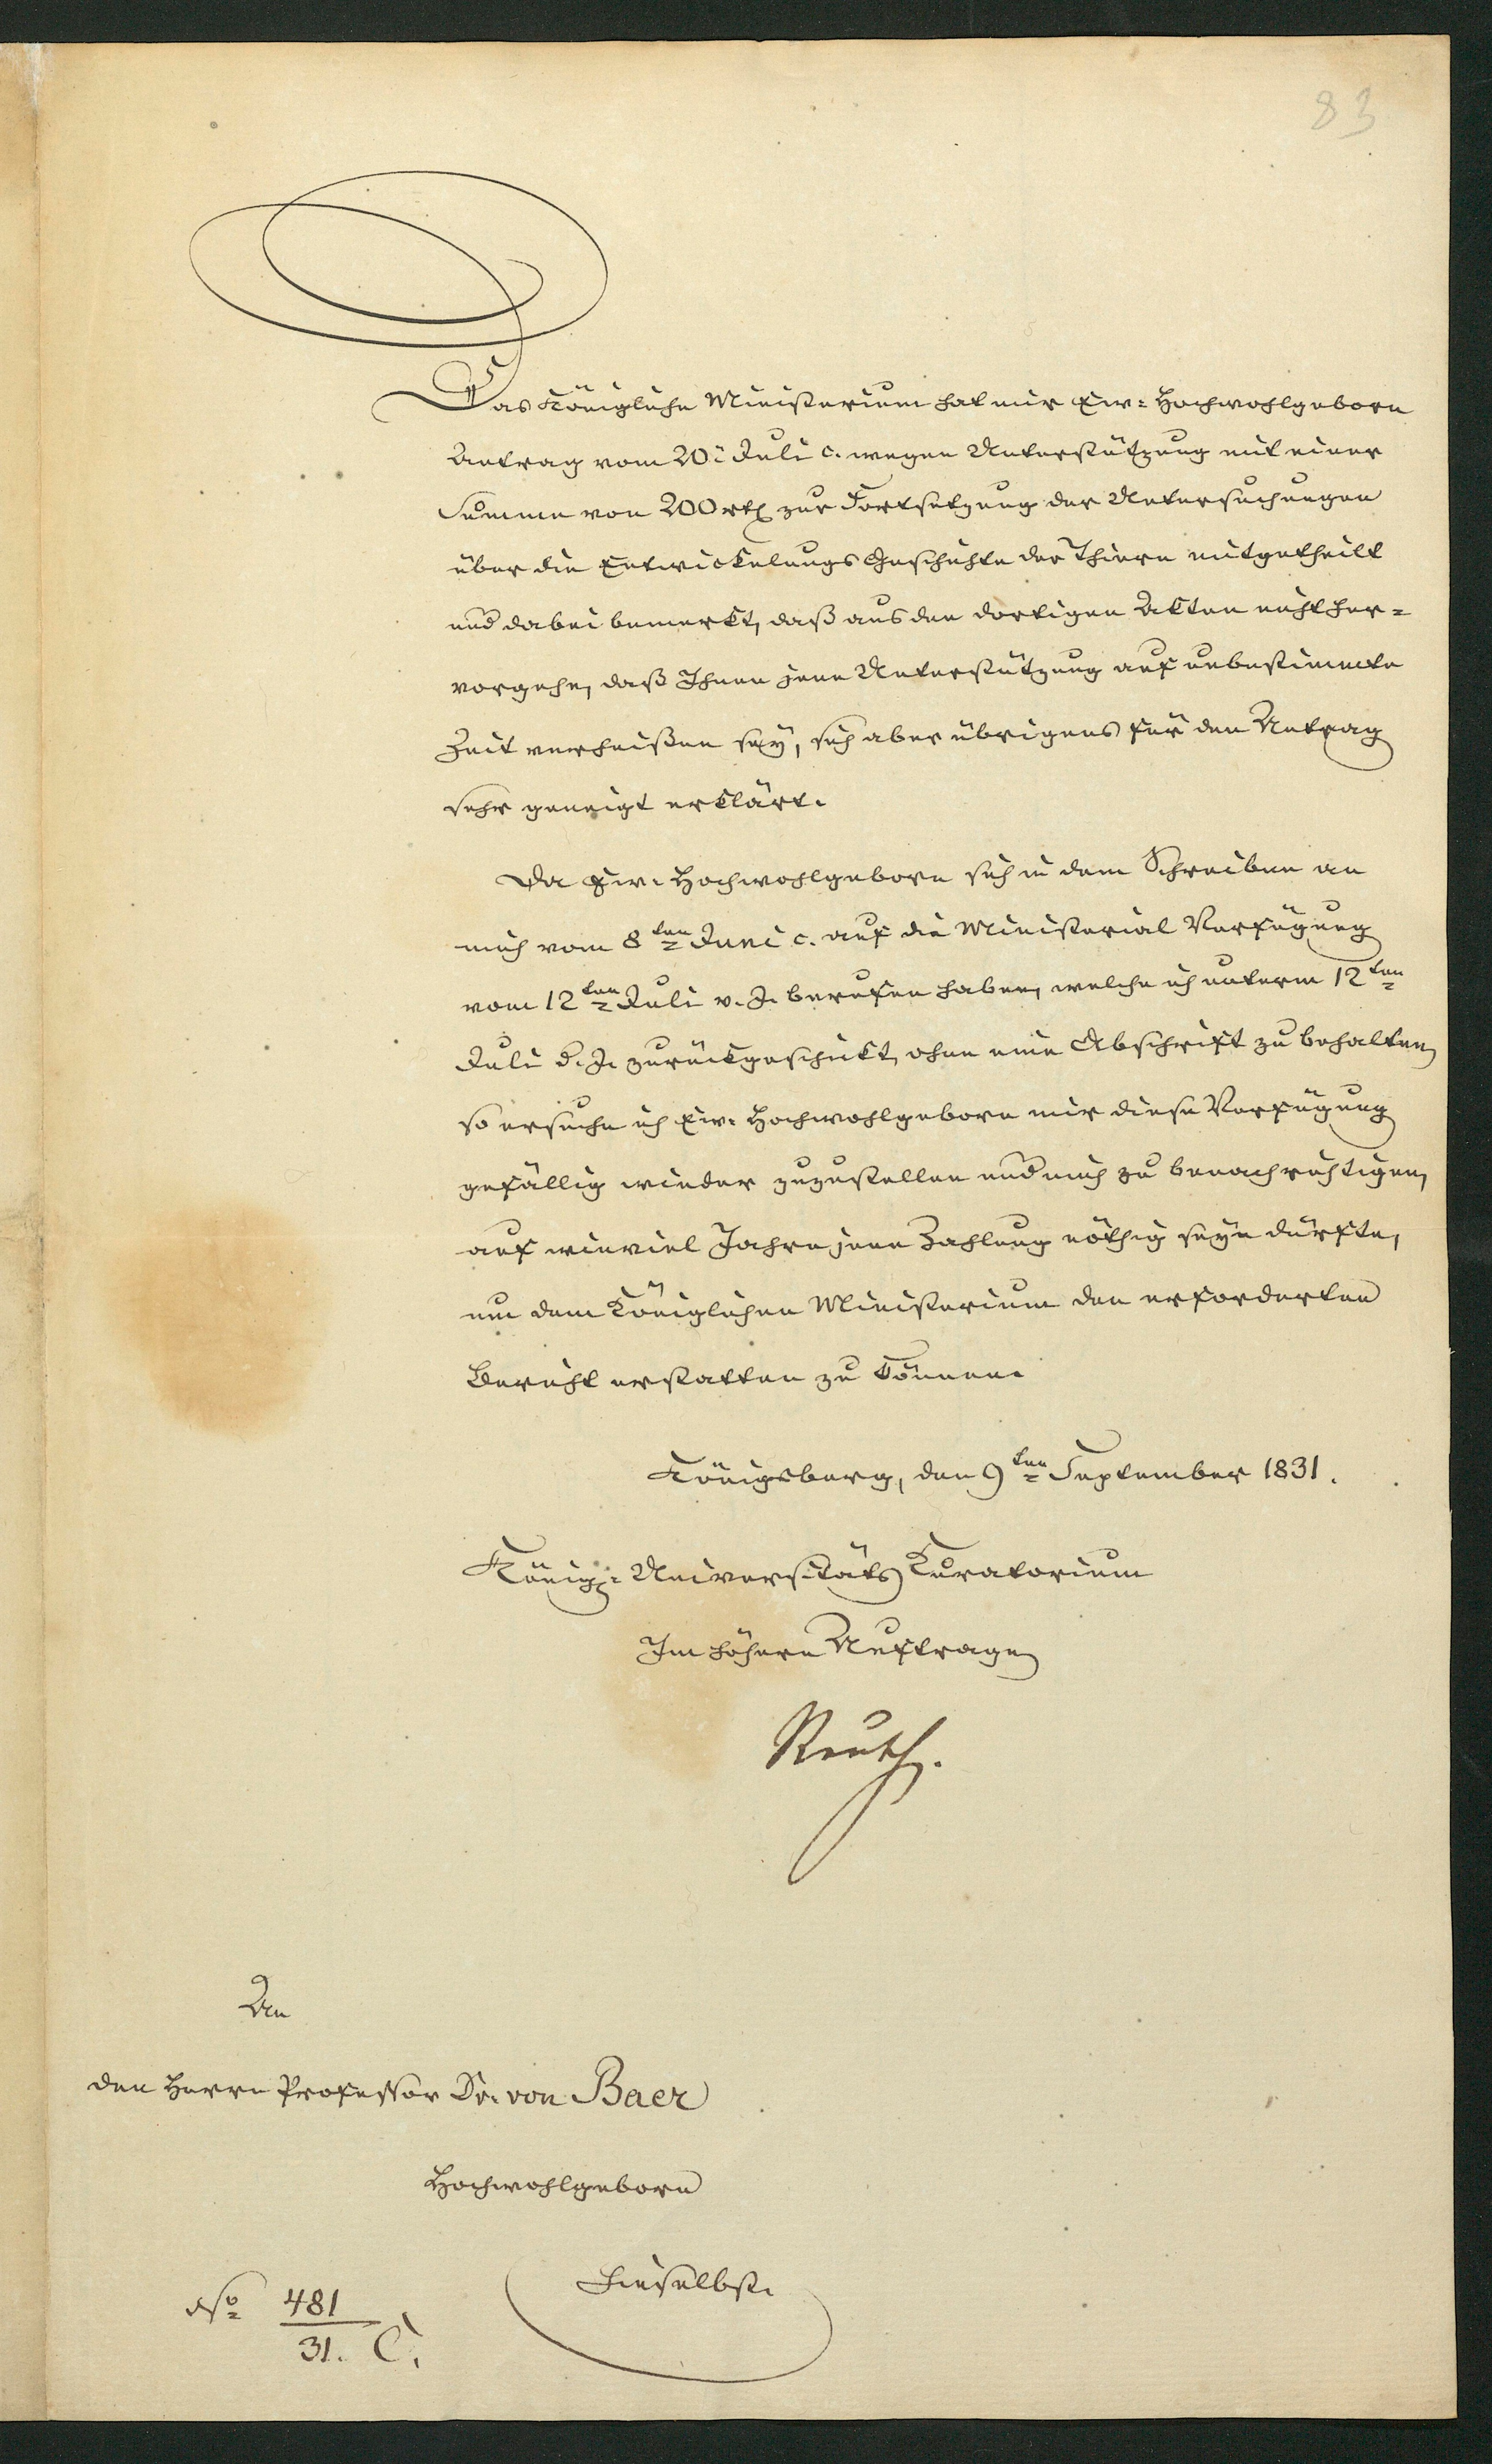 83
Das Königliche Ministerium hat mir Ew: Hochwohlgeborn
Antrag vom 20: Juli c. wegen Unterstützung mit einer
Summe von 200 rtl zur Fortsetzung der Untersuchungen
über die Entwickelungs Geschichte der Thiere mitgetheilt
und dabei bemerkt, daß aus den dortigen Akten nicht her-
vorgehe, daß Ihnen jene Unterstützung auf unbestimmte
Zeit verheißen sey, sich aber übrigens für den Antrag
sehr geneigt erklärt.
Da Ew. Hochwohlgeborn sich in dem Schreiben an
mich vom 8ten Juni c. auf die Ministerial Verfügung
vom 12ten Juli v. J. berufen haben, welche ich unterm 12ten
Juli d. J. zurückgeschickt, ohne eine Abschrift zu behalten,
so ersuche ich Ew. Hochwohlgeborn mir diese Verfügung
gefällig wieder zuzustellen und mich zu benachrichtigen,
auf wieviel Jahre jene Zahlung nöthig seyn dürfte,
um dem Königlichen Ministerium den erforderten
Bericht erstatten zu können.
Königsberg, den 9ten September 1831.
Königl. Universitäts Kuratorium
Im höhern Auftrage
Reuth.
An
den Herrn Professor Dr. von Baer
Hochwohlgeborn
Hieselbst.
No 481
31. C.